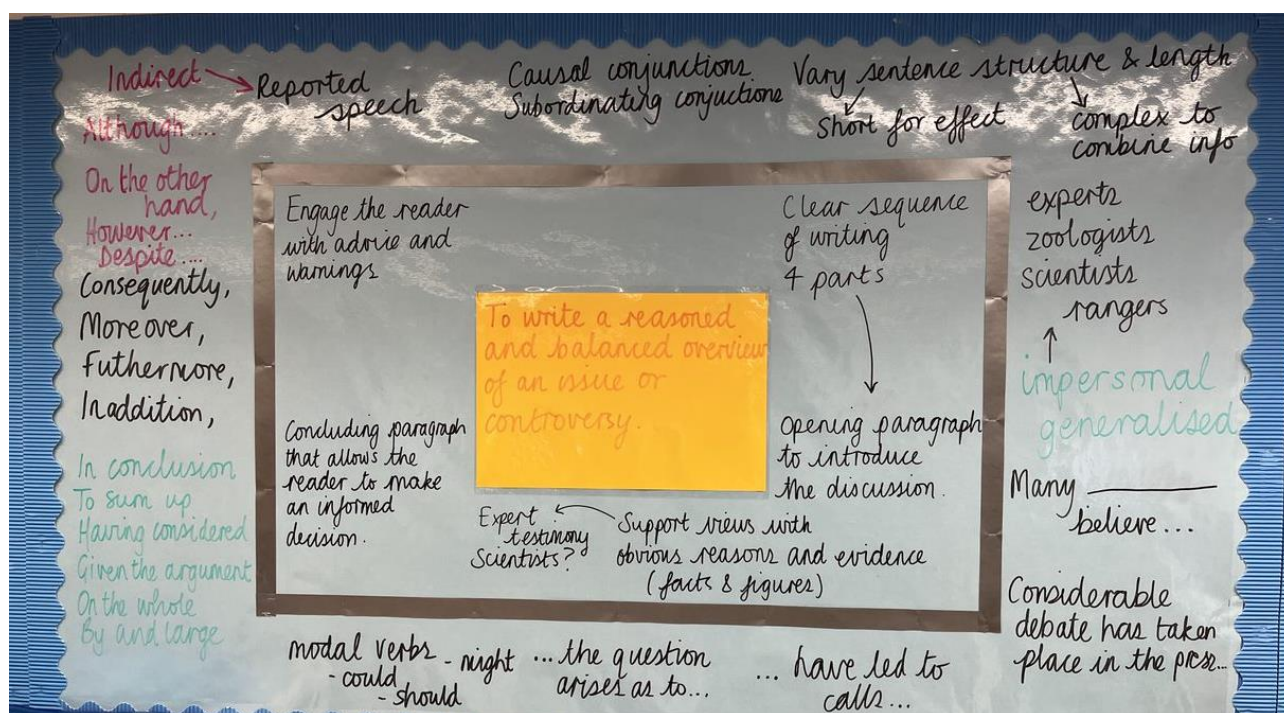 Indirect
Reported
speech
Causal conjunctions
Subordinating conjuctions
Vary sentence structure & length
short for effect
complex to
combine info
Although....
On the other
hand,
However...
Despite....
Consequently,
Moreover,
Futhermore,
Inaddition,
In conclusion
To sum up
Having considered
Given the argument
On the whole
By and large
Engage the reader
with advice and
warnings
Clear sequence
of writing
4 parts
To write a reasoned
and balanced overview
of an issue or
controversy.
Concluding paragraph
that allows the
reader to make
an informed
decision.
Opening paragraph
to introduce
the discussion.
Expert
testimony
Scientists?
Support views with
obvious reasons and evidence
(facts & figures)
experts
zoologists
scientists
rangers
impersonal
generalised
Many ________
believe...
Considerable
debate has taken
place in the press...
modal verbs
- could
- should
- might
...the question
arises as to...
... have led to
calls...